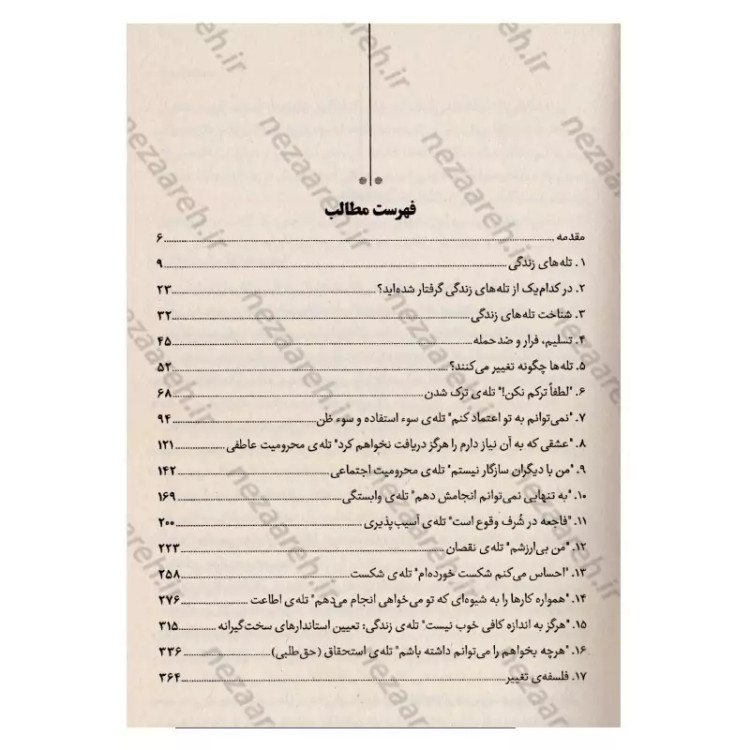 فهرست مطالب
مقدمه ........ ۶
۱. تله‌های زندگی ........ ۹
۲. در کدام‌یک از تله‌های زندگی گرفتار شده‌اید؟ ........ ۲۳
۳. شناخت تله‌های زندگی ........ ۳۲
۴. تسلیم، فرار و ضدحمله ........ ۴۵
۵. تله‌ها چگونه تغییر می‌کنند؟ ........ ۵۲
۶. "لطفاً ترکم نکن!" تله‌ی ترک شدن ........ ۶۸
۷. "نمی‌توانم به تو اعتماد کنم" تله‌ی سوء استفاده و سوء ظن ........ ۹۴
۸. "عشقی که به آن نیاز دارم را هرگز دریافت نخواهم کرد" تله‌ی محرومیت عاطفی ........ ۱۲۱
۹. "من با دیگران سازگار نیستم" تله‌ی محرومیت اجتماعی ........ ۱۴۲
۱۰. "به تنهایی نمی‌توانم انجامش دهم" تله‌ی وابستگی ........ ۱۶۹
۱۱. "فاجعه در شُرف وقوع است" تله‌ی آسیب‌پذیری ........ ۲۰۰
۱۲. "من بی‌ارزشم" تله‌ی نقصان ........ ۲۲۳
۱۳. "احساس می‌کنم شکست خورده‌ام" تله‌ی شکست ........ ۲۵۸
۱۴. "همواره کارها را به شیوه‌ای که تو می‌خواهی انجام می‌دهم" تله‌ی اطاعت ........ ۲۷۶
۱۵. "هرگز به اندازه کافی خوب نیست" تله‌ی زندگی: تعیین استاندارهای سخت‌گیرانه ........ ۳۱۵
۱۶. "هرچه بخواهم را می‌توانم داشته باشم" تله‌ی استحقاق (حق‌طلبی) ........ ۳۳۶
۱۷. فلسفه‌ی تغییر ........ ۳۶۴
nezaareh.ir